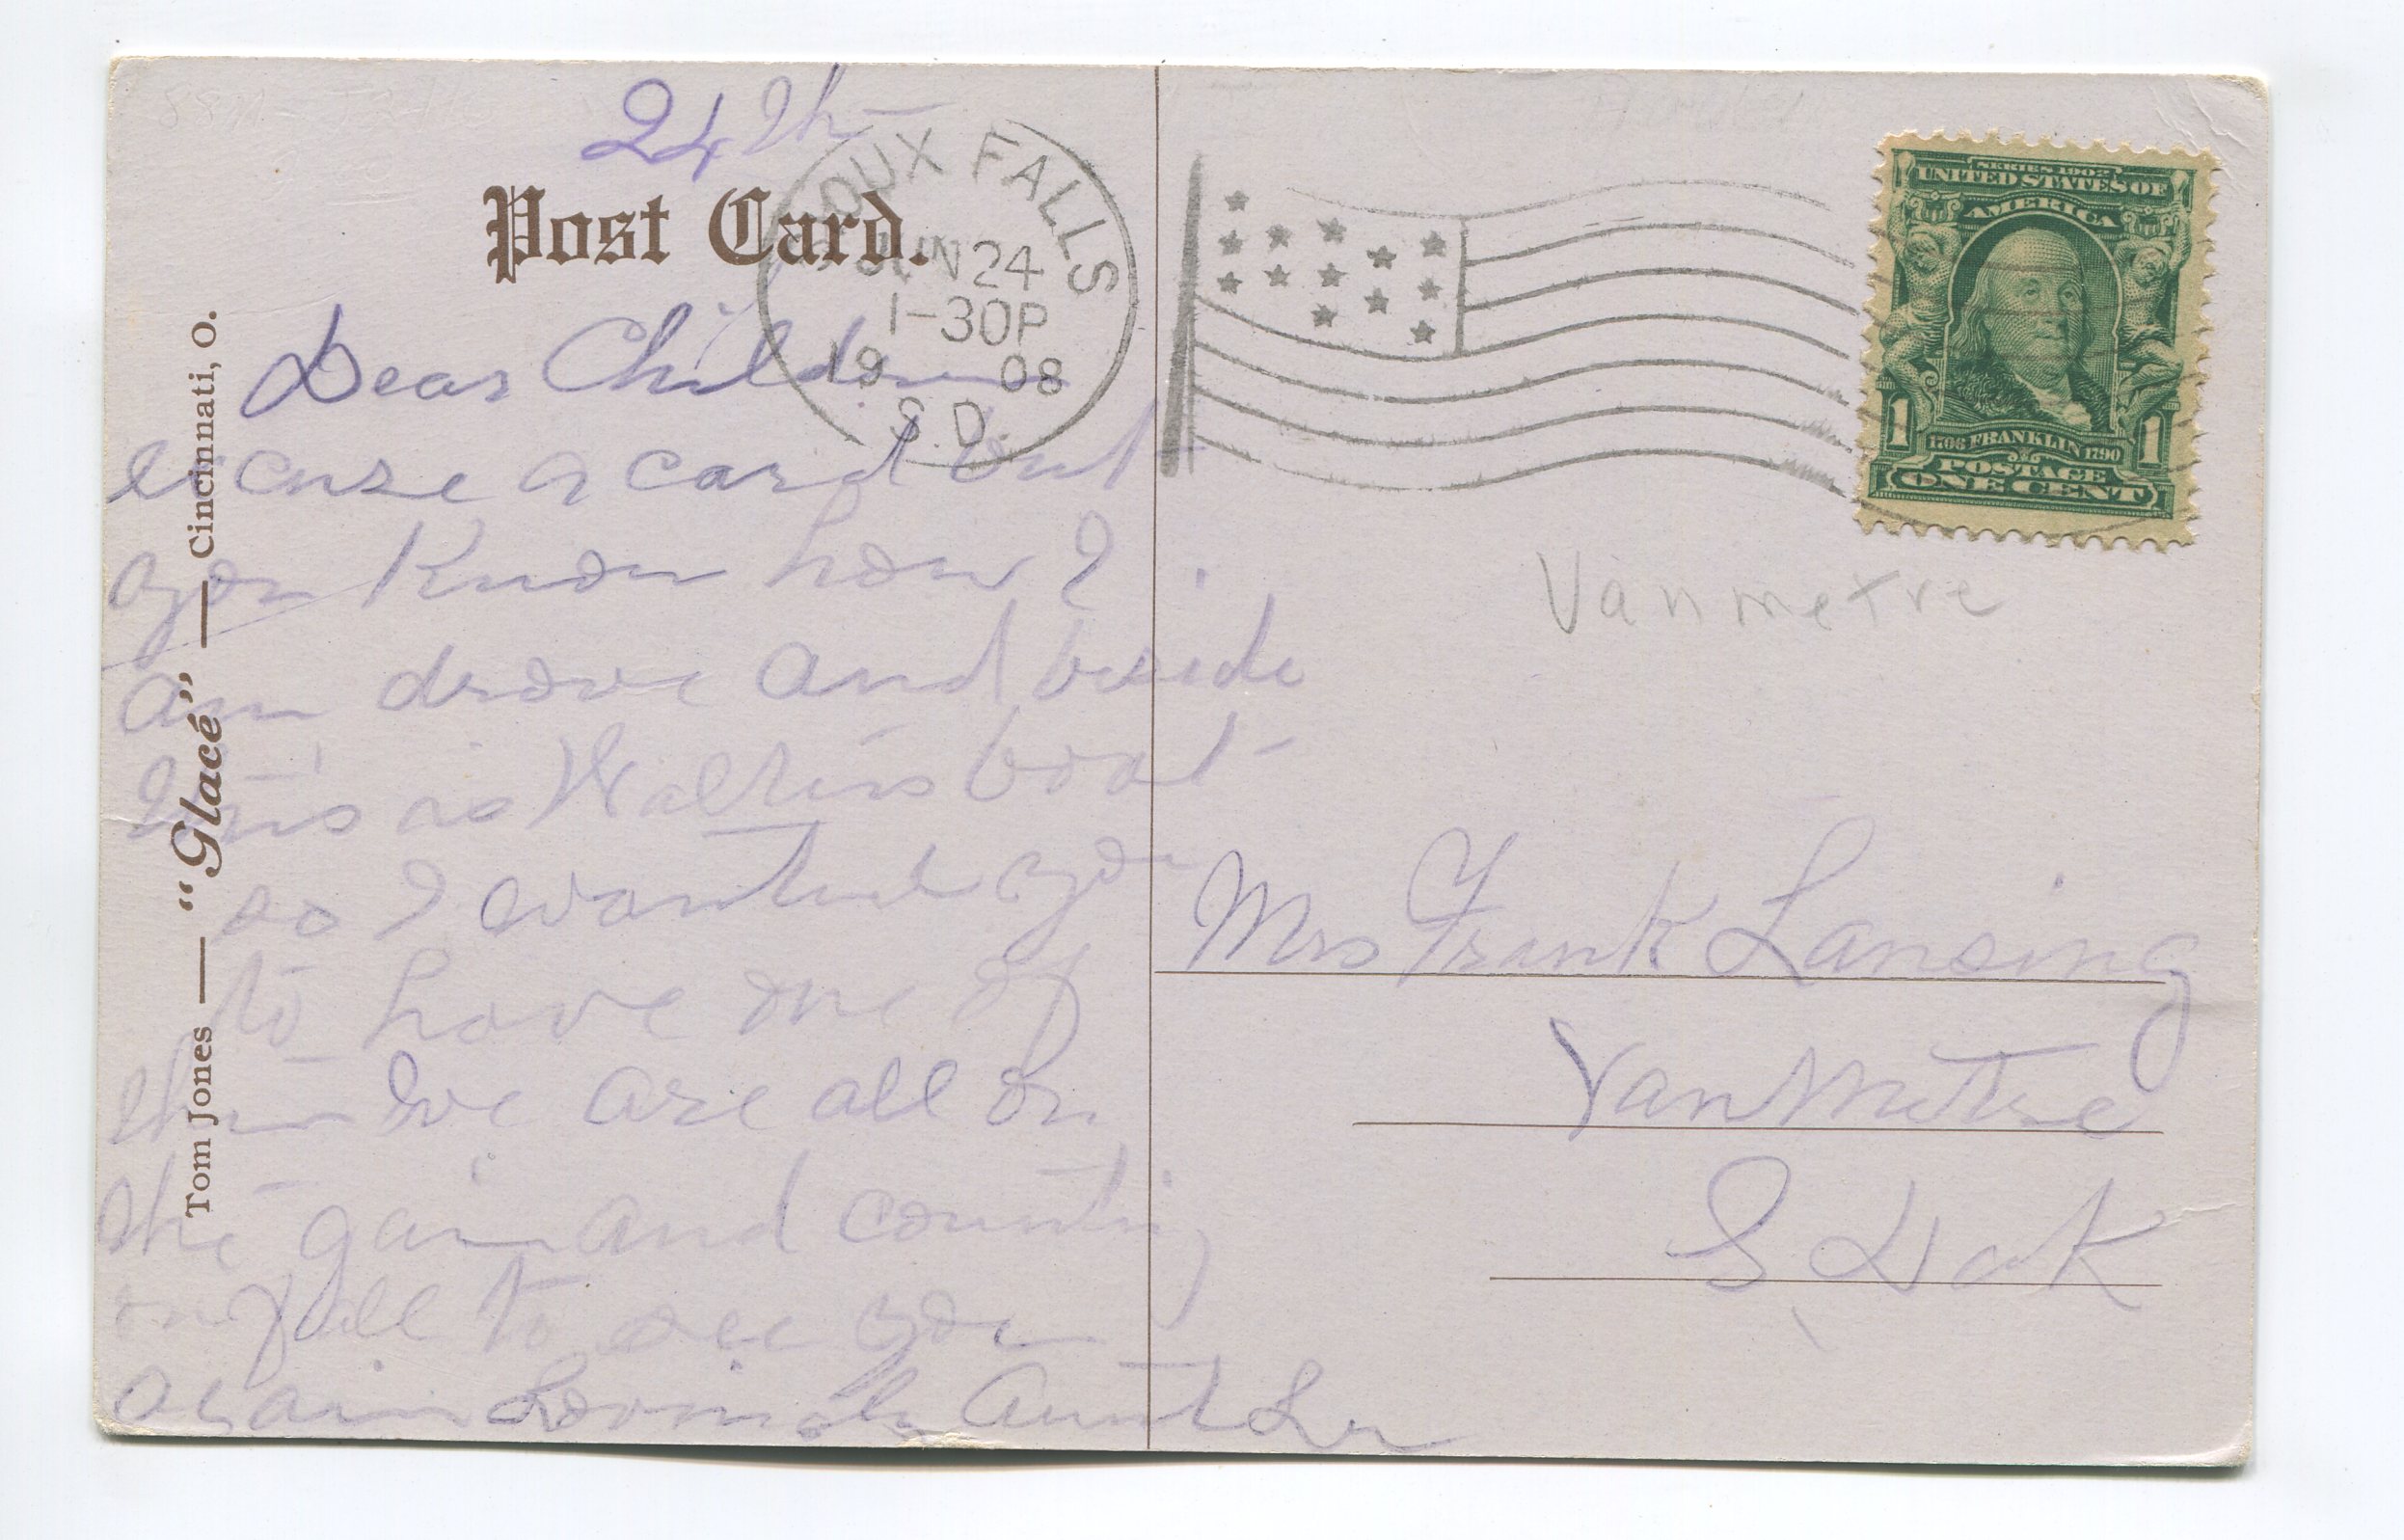 24th
Post Card.
SIOUX FALLS
JUN 24
1-30P
19 08
S.D.
Dear Children
excuse a card but
you know how I
am drove and beside
this is Walters boat
so I wanted you
to have one of
them We are all on
the gain and counting
on fall to see you
again Lovingly Aunt
Tom Jones — "Glacé" — Cincinnati, O.
SERIES 1902
UNITED STATES OF
AMERICA
1 1
1706 FRANKLIN 1790
POSTAGE
ONE CENT
Vanmetre
Mrs Frank Lansing
Van Metre
S. Dak